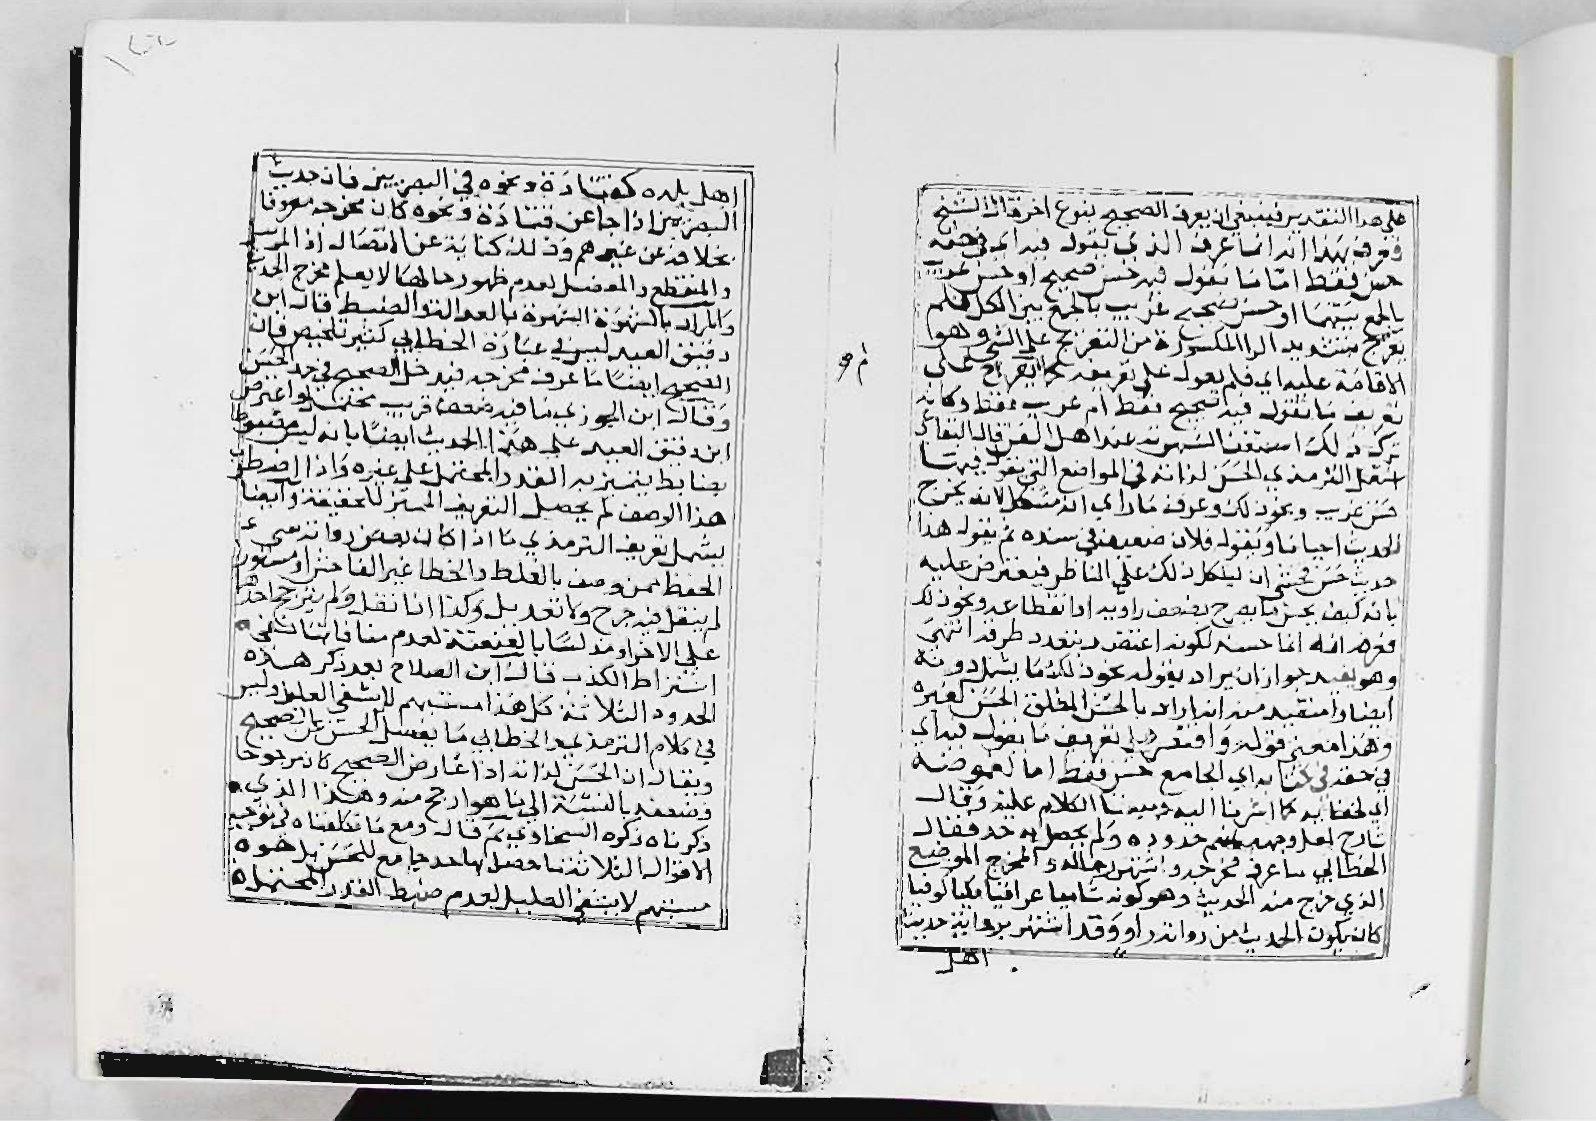 على هذا التقدير فينبغي ان يعرف الصحيح بنوع اخر قال الشيخ
فعرف بهذا انه انما عرف الذي يقول فيه اي في حقه
حسن فقط اما ما يقول فيه حسن صحيح او حسن غريب
بالجمع بينهما او حسن صحيح غريب بالجمع بين الكل فلم
يعرج بتشديد الرا المكسورة من التعريج على الشي وهو
الاقامة عليه اي فلم يعول على تعريفه كما لم يعرج على
تعريف ما يقول فيه صحيح فقط ام غريب فقط وكانه
ترك ذلك استغنا لشهرته عند اهل الفن قال البقاعي
الترمذي الحسن لذاته في المواضع التي يقول فيها
حسن غريب ونحو ذلك وعرف ما راى انه مشكل لانه يخرج
الحديث احيانا ويقول فلان ضعيف في سنده ثم يقول هذا
حديث حسن فخشي ان يشكل ذلك على الناظر فيعترض عليه
بانه كيف يحسن ما يصرح بضعف راويه او انقطاعه ونحو ذلك
فعرف انه انما حسنه لكونه اعتضد بتعدد طرقه انتهى
وهو يفيد جواز ان يراد بقوله نحو ذلك ما يشمل دونه
ايضا وانتقيد من انه اراد بالحسن المطلق الحسن لغيره
وهذا معنى قوله واقتصر على تعريف ما يقول فيه اي
في حقه في كتابه اي الجامع حسن فقط اما لغموضه
اي لخفايه كما اشرنا اليه وبينا الكلام عليه وقال
شارح لعل وجهه حدوده ولم يحصل به حد فقال
الخطابي ما عرف مخرجه واشتهر رجاله والمخرج الموضع
الذي خرج منه الحديث وهو كونه شاميا عراقيا مكيا كوفيا
كان يكون الحديث من رواية راو وقد اشتهر برواية حديث
اهل
اهل بلده كقتادة ونحوه في البصريين فان حديث
البصريين اذا جا عن قتادة ونحوه كان مخرجه معروفا
بخلافه عن غيرهم وذلك كناية عن الاتصال اذ المرسل
والمنقطع والمعضل لعدم ظهور رجالها لا يعلم مخرج الحديث
والمراد بالشهرة الشهرة بالعدالة والضبط قال ابن
دقيق العيد ليس في عبارة الخطابي كثير تلخيص فان
الصحيح ايضا ما عرف مخرجه فيدخل الصحيح في حد الحسن
وقال ابن الجوزي ما فيه ضعف قريب محتمل واعترض
ابن دقيق العيد على هذا الحديث ايضا بانه ليس مضبوطا
بضابط يتميز به القدر المحتمل على غيره واذا اضطرب
هذا الوصف لم يحصل التعريف المميز للحقيقة وايضا
يشمل تعريف الترمذي ما اذا كان بعض رواته سيء
الحفظ ممن وصف بالغلط والخطا غير الفاحش او مستورا
لم ينقل فيه جرح ولا تعديل وكذا اذا نقل ولم يترجح احدهما
على الاخر او مدلسا بالعنعنة لعدم منافاتها
اشتراط الكذب قال ابن الصلاح بعد ذكر هذه
الحدود الثلاثة كل هذا مستبهم لا يشفي الغليل وليس
في كلام الترمذي والخطابي ما يفصل الحسن عن الصحيح
ويقال ان الحسن لذاته اذا عارض الصحيح كان مرجوحا
وضعفه بالنسبة الى ما هو ارجح منه وهذا الذي
ذكرناه ذكره السخاوي ثم قال ومع ما تكلفناه في توجيه
الاقوال الثلاثة ما حصل بها حد جامع للحسن بل هو
مستبهم لا يشفي الغليل لعدم ضبط القدر المحتمل